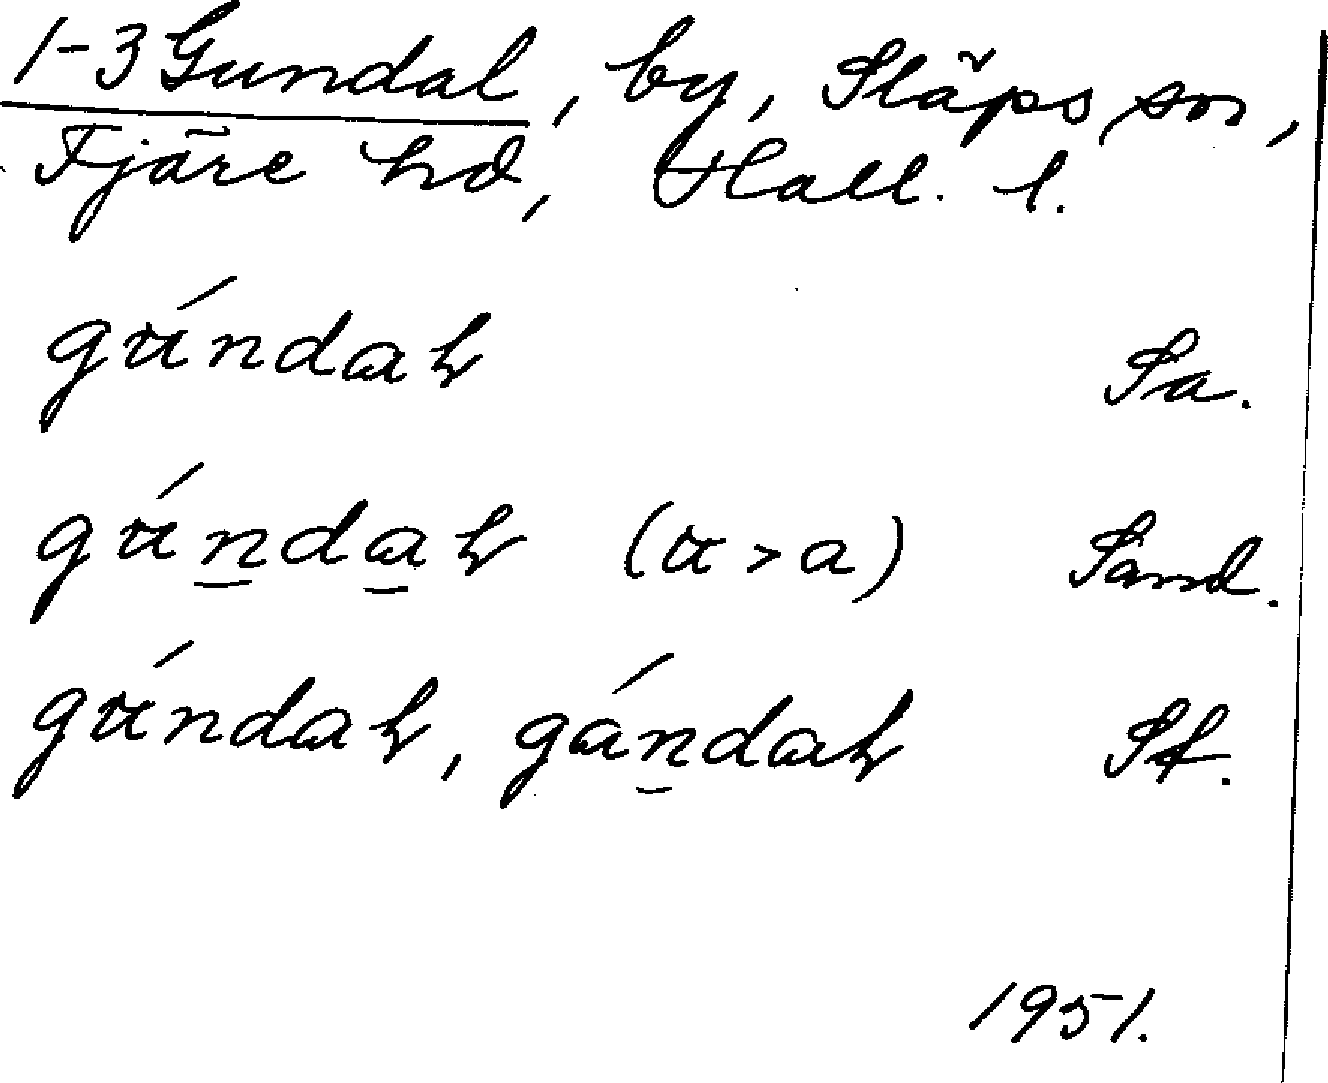 1-3 Gundal, by, Släps sn,
Fjäre hd, Hall. l.
gúndaɫ Sa.
gúndaɫ (u > a) Sand.
gúndaɫ, gándaɫ Sf.
1951.